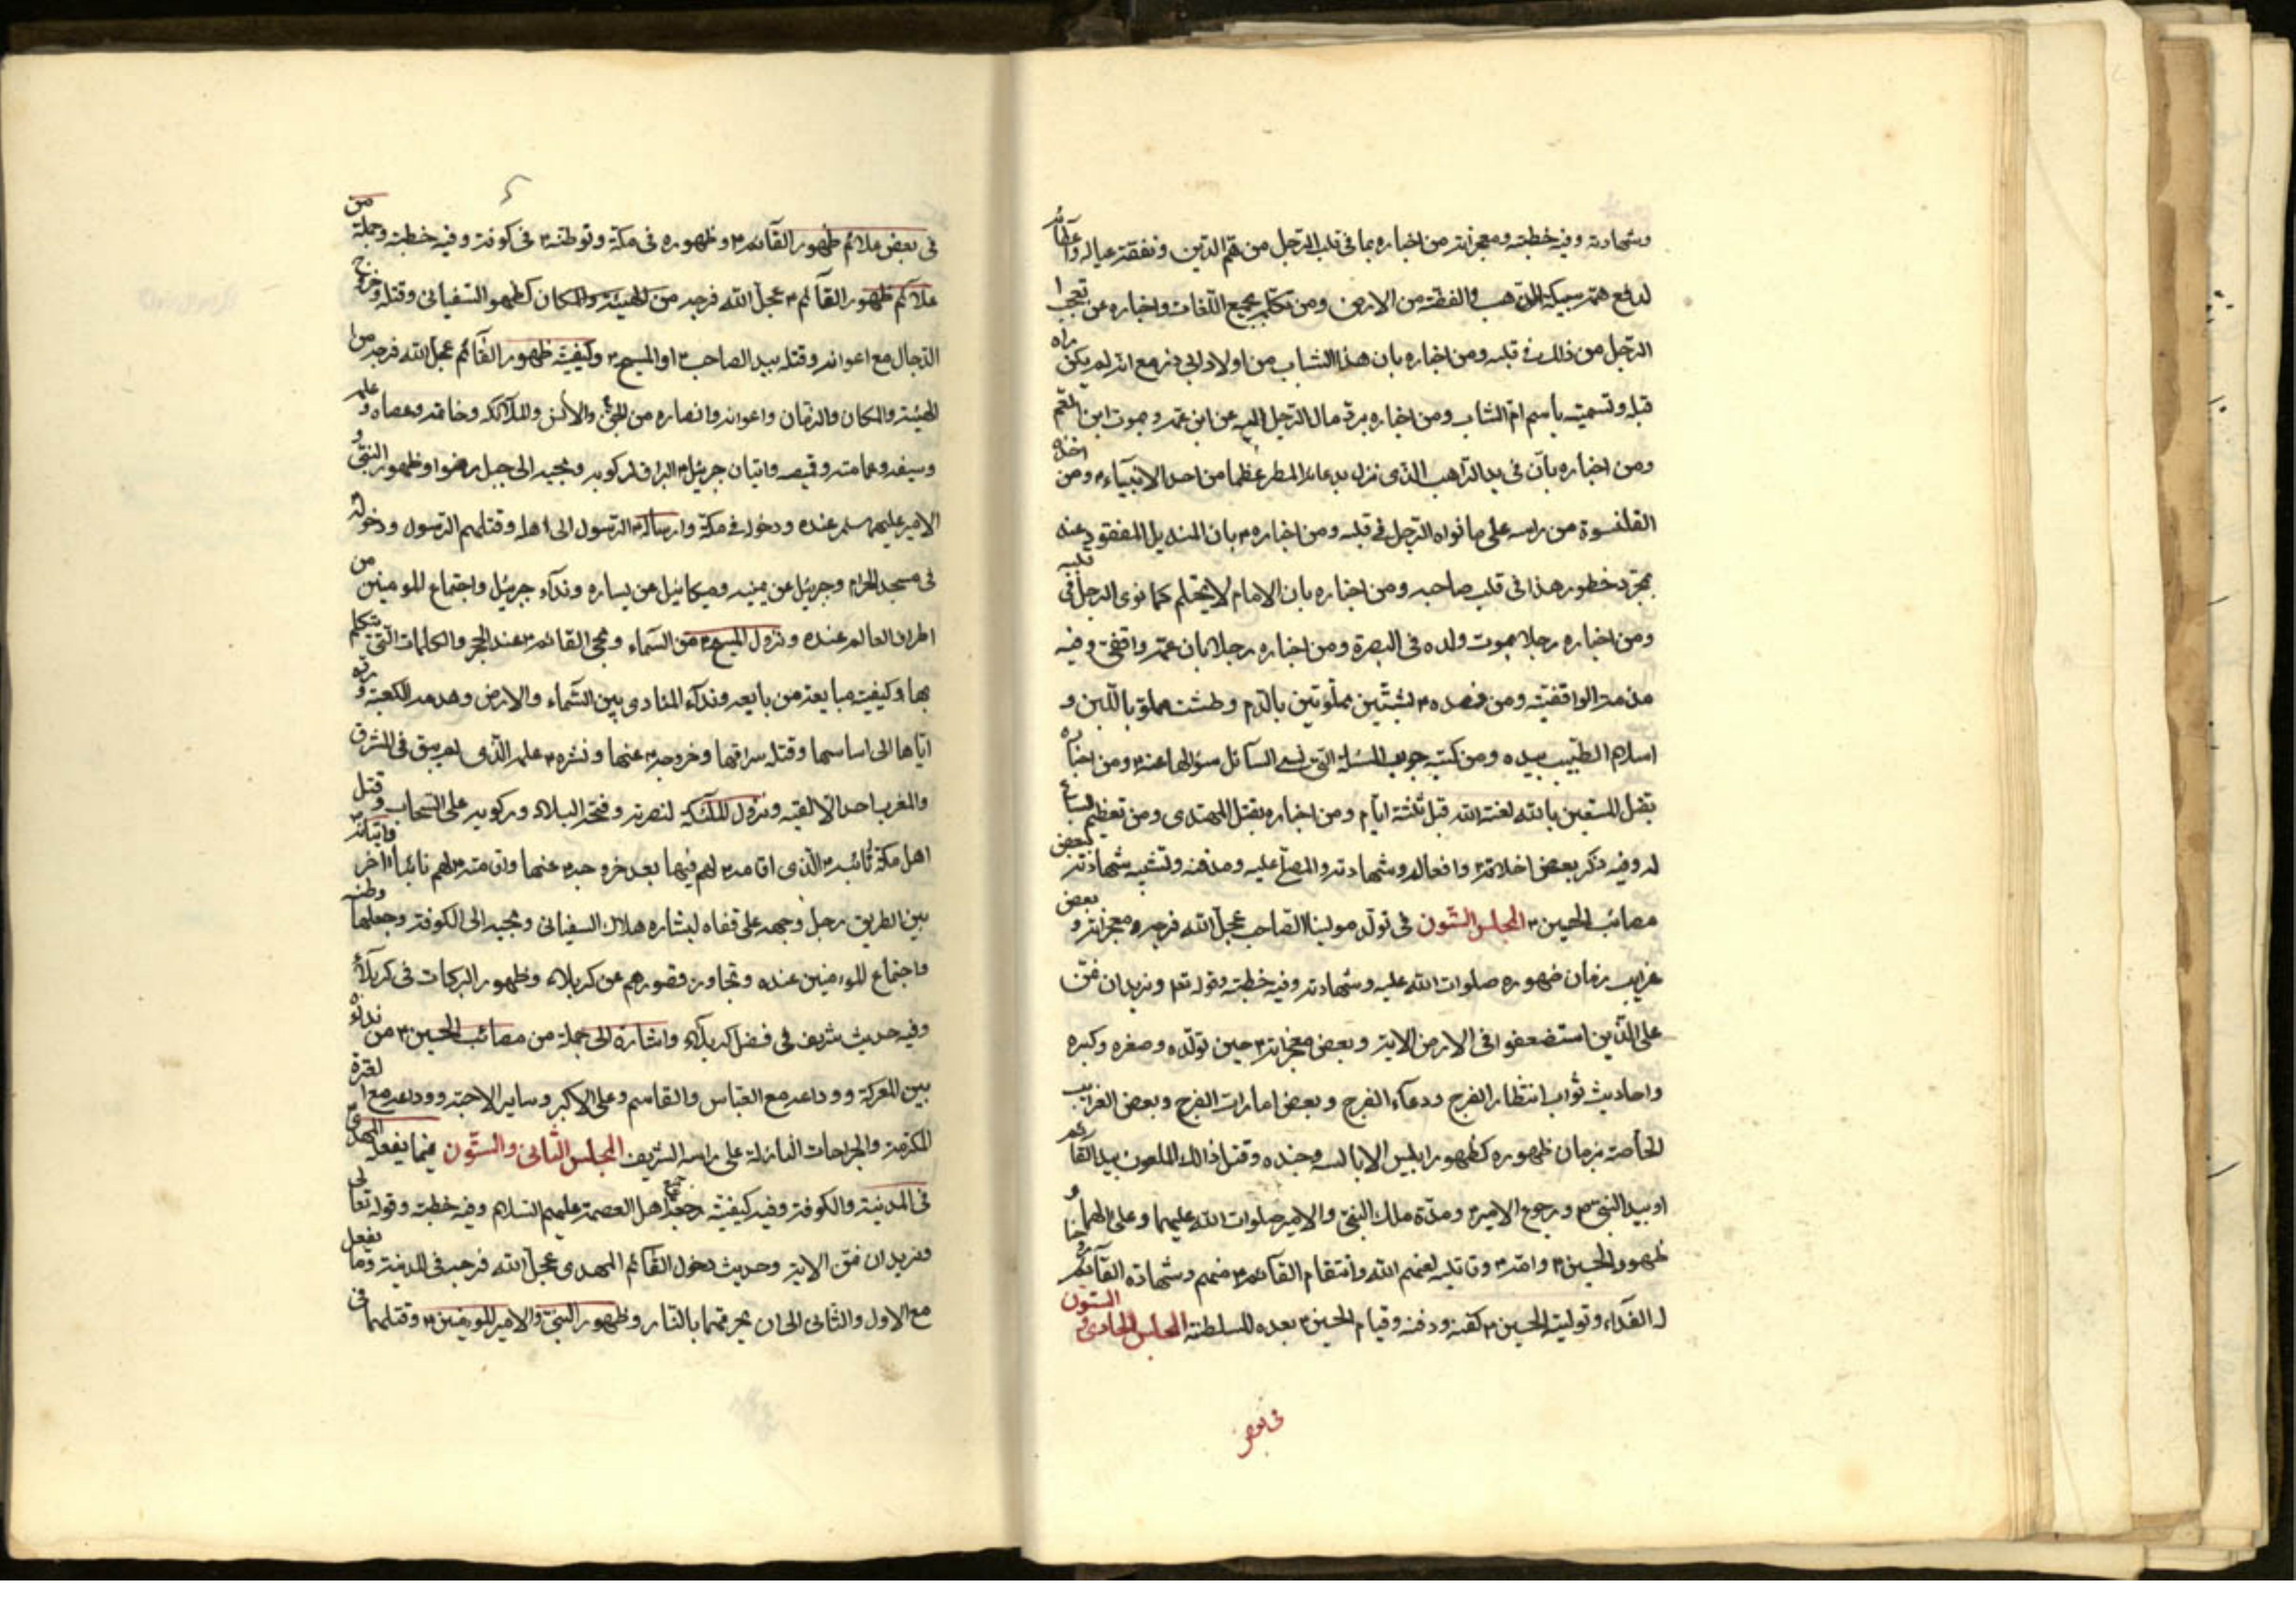 وشهادته وفيه خطبته ومعجزاته من اخباره بما فى قلب الرجل من هم الدين ونفقة عياله واعطائه
لدفع همه سبيكة الذهب والفضة من الارض ومن تكلمه بجميع اللغات واخباره عن تعجب
الرجل من ذلك فى قلبه ومن اخباره بان هذا الشاب من اولاد ابي ذر مع انه لم يكن راه
قبله وتسميته باسم ام الشاب ومن اخباره برد مال الرجل اليه عن ابن عمه وبموت ابن العم
ومن اخباره بان فى يد الراهب الذى نزل بدعائه المطر عظما من احد الانبياء ومن اخذه
القلنسوة من راسه على ما نواه الرجل فى قلبه ومن اخباره بان المنديل المفقود عنه
بمجرد خطور هذا فى قلب صاحبه ومن اخباره بان الامام لا يحتلم كما نوى الرجل فى قلبه
ومن اخباره رجلا بموت ولده فى البصرة ومن اخباره رجلا بان عمه واقفى وفيه
مذمة الواقفية ومن فصده بشيئين مملوتين بالدم وطشت مملو باللبن و
اسلام الطبيب بيده ومن كتبه جواب المسئلة التى نسى السائل سؤالها عنه ومن اخباره
بقتل المستعين بالله لعنه الله قبل ثلثة ايام ومن اخباره بقتل المهتدى ومن تعظيم السباع
له وفيه ذكر بعض اخلاقه وافعاله وشهادته والمصلى عليه ومدفنه وتشبيه شهادته ببعض
مصائب الحسين المجلس الستون فى تولد مولينا الصاحب عجل الله فرجه ومعجزاته وبعض
غرايب زمان ظهوره صلوات الله عليه وشهادته وفيه خطبته وقوله تعم ونريد ان نمن
على الذين استضعفوا فى الارض الاية وبعض معجزاته حين تولده وصغره وكبره
واحاديث ثواب انتظار الفرج ودعاء الفرج وبعض امارات الفرج وبعض الغرايب
الخاصة بزمان ظهوره كظهور ابليس الابالسه وجنده وقتل ذالك الملعون بيد القائم
او بيد النبى صم ورجوع الامير ومدة ملك النبى والامير صلوات الله عليهما وعلى الهما و
ظهور الحسين وامه وقاتليه لعنهم الله وانتقام القائم منهم وشهادة القائم
له الفداء وتولية الحسين كفنه ودفنه وقيام الحسين بعده للسلطنة المجلس الحادى و الستون
فى بعض
فى بعض علائم ظهور القائم وظهوره فى مكة وتوطنه فى كوفة وفيه خطبته وجملة من
علائم ظهور القائم عجل الله فرجه من الهيئة والمكان كظهور السفيانى وقتله وخروج
الدجال مع اعوانه وقتله بيد الصاحب او المسيح وكيفية ظهور القائم عجل الله فرجه من
الهيئة والمكان والزمان واعوانه وانصاره من الجن والانس والملائكة وخاتمه وعصاه وعلمه
وسيفه وعمامته وقميصه واتيان جبرئيل البراق لركوبه ومجيه الى جبل رضوا وظهور النبى و
الامير عليهما سلم عنده ودخوله فى مكة وارساله الرسول الى اهله وقتلهم الرسول ودخوله
فى مسجد الحرام وجبرئيل عن يمينه وميكائيل عن يساره ونداء جبرئيل واجتماع المومنين من
اطراف العالم عنده ونزول المسيح من السماء ومجى القائم عند الحجر والكلمات التى تتكلم
بها وكيفية مبايعة من بايعه ونداء المنادى بين السماء والارض وهدمه الكعبة ورده
اياها الى اساسها وقتله سراقها وخروجه عنها ونشره علمه الذى لم يبق فى المشرق
والمغرب احد الا لقيه ونزول الملئكة لنصرته وفتحه البلاد وركوبه على السحاب وقتل
اهل مكة نائبه الذى اقامه لهم فيها بعد خروجه عنها واقامته لهم نائبا اخر واتيانه
بين الطريق رجل وجهه على قفاه لبشارة هلاك السفيانى ومجيه الى الكوفة وجعلها وطنه
واجتماع المومنين عنده وتجاوز قصورهم عن كربلاء وظهور البركات فى كربلاء
وفيه حديث شريف فى فضل كربلاء واشارة الى جملة من مصائب الحسين من نداءه
بين المعركة ووداعه مع العباس والقاسم وعلى الاكبر وساير الاحبه ووداعه مع العترة
المكرمة والجراحات النازلة على راسه الشريف المجلس الثانى والستون فيما يفعله المهدى
فى المدينة والكوفة وفيه كيفية رجعة جميع اهل العصمة عليهم السلام وفيه خطبته وقوله تعالى
ونريد ان نمن الاية وحديث دخول القائم المهدى عجل الله فرجه فى المدينة وما يفعل
مع الاول والثانى الى ان يحرقهما بالنار وظهور النبى والامير المومنين وقتلهما فى